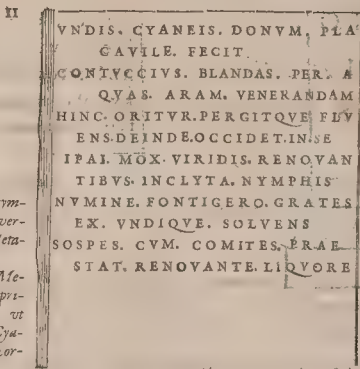 II
VNDIS. CYANEIS. DONVM. PLA
CAVILE. FECIT
CONTVCCIVS. BLANDAS. PER. A
QVAS. ARAM. VENERANDAM
HINC. ORITVR. PERGITQVE FLV
ENS. DEINDE. OCCIDET. IN. SE
IPAI. MOX. VIRIDIS. RENOVAN
TIBVS. INCLYTA. NYMPHIS
NVMINE. FONTIGERO. GRATES
EX. VNDIQVE. SOLVENS
SOSPES. CVM. COMITES. PRAE
STAT. RENOVANTE. LIQVORE
ym-
ver-
leta-
Me-
pri-
ut
Cya-
cor-